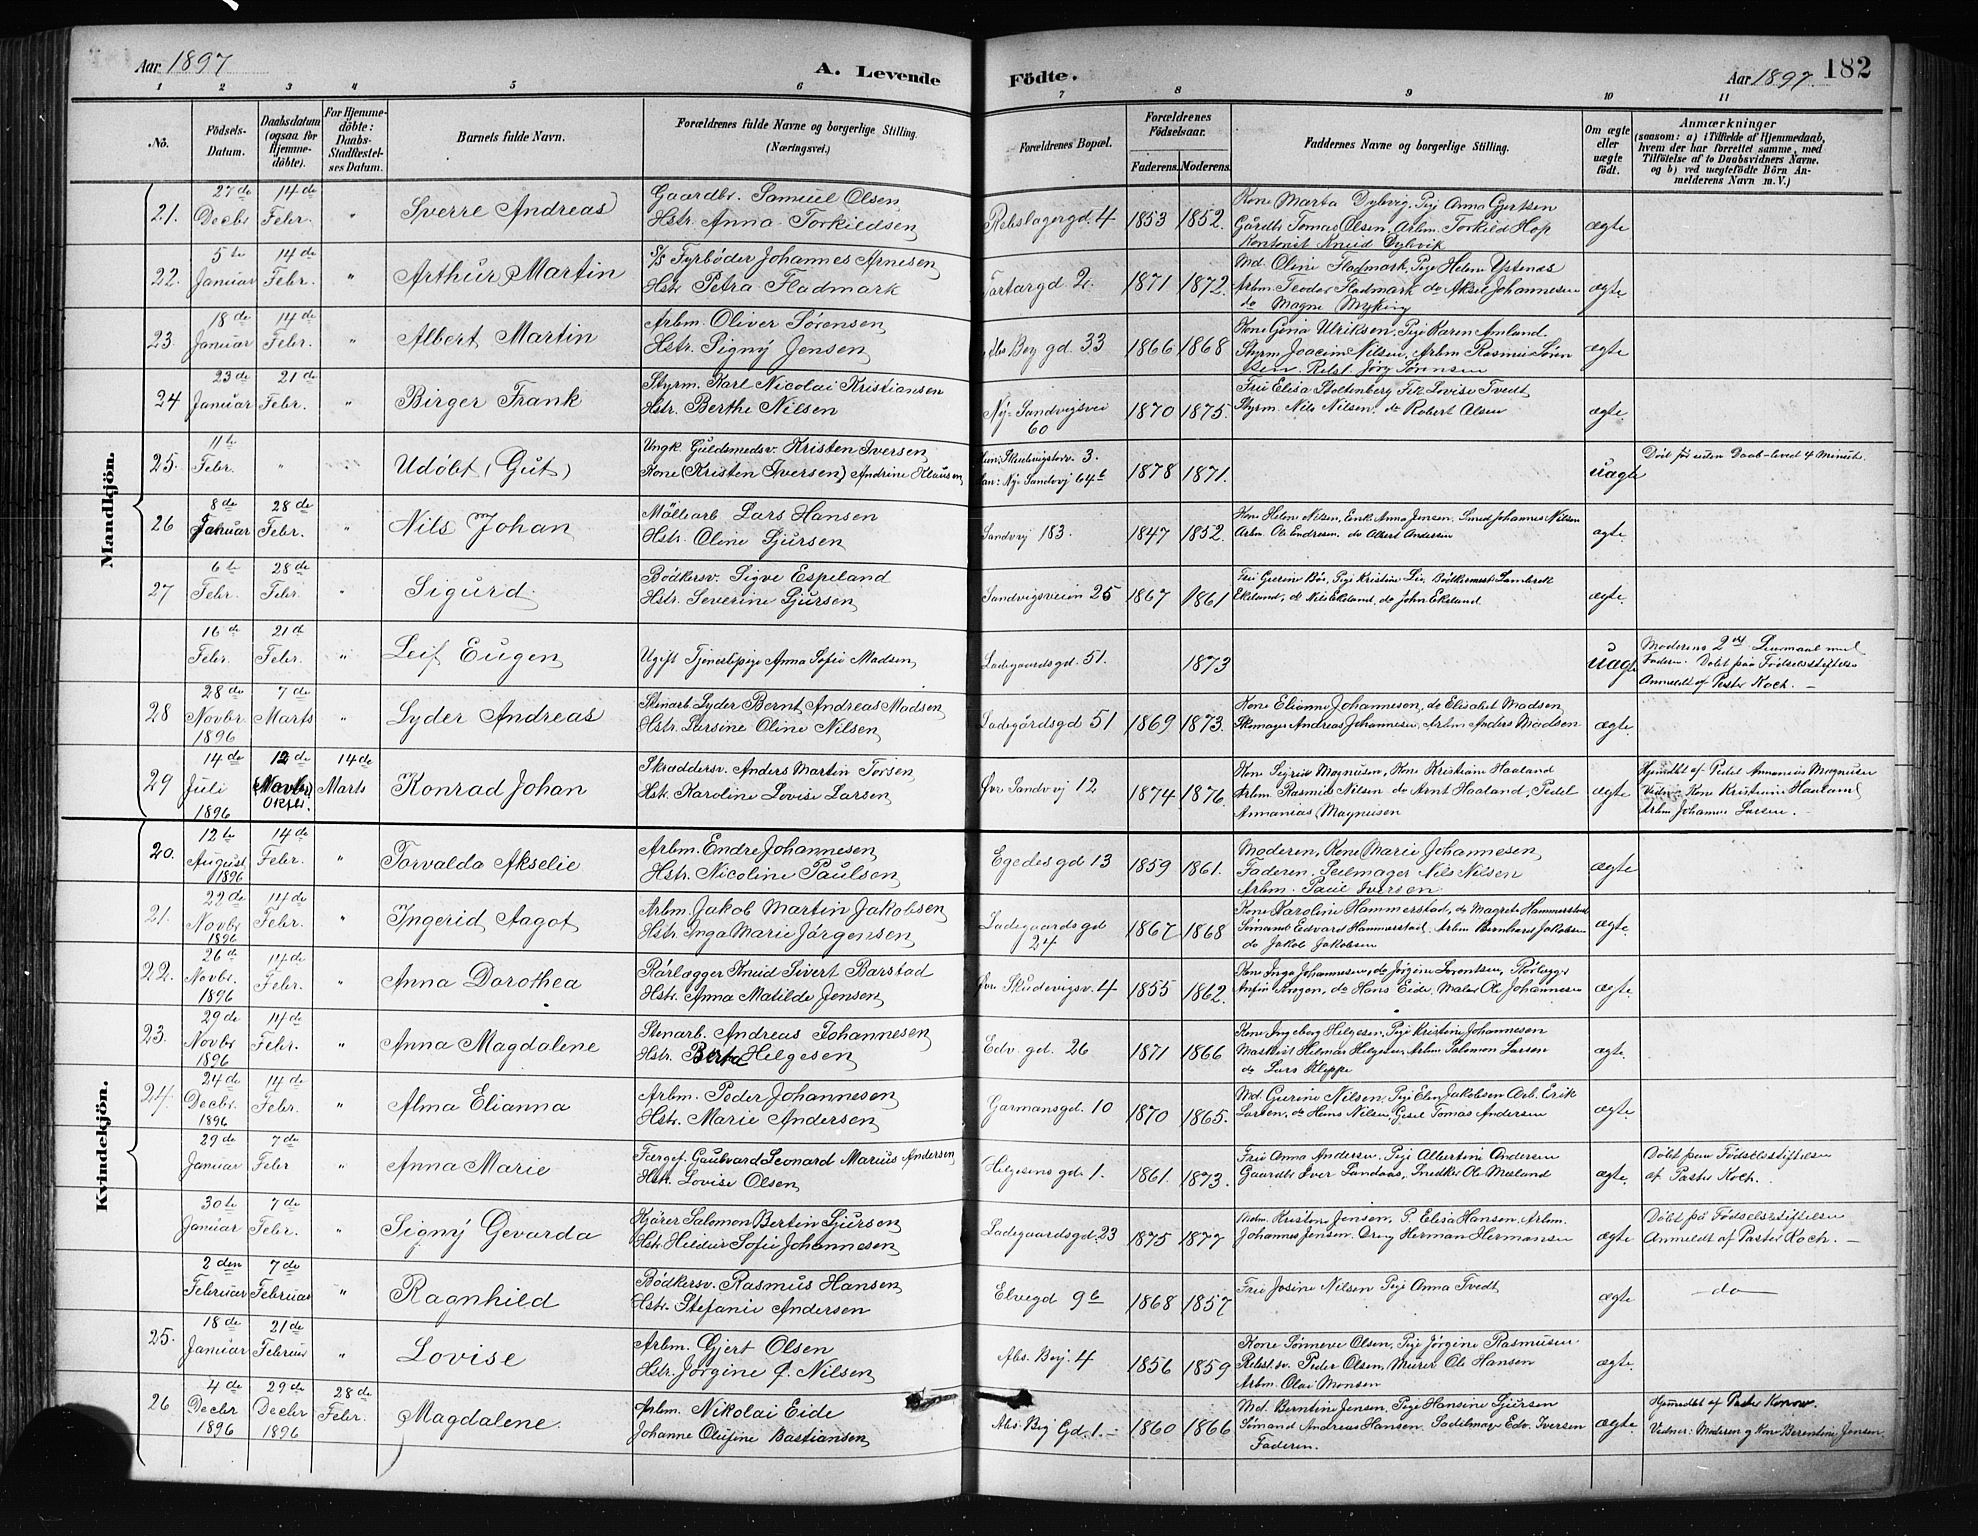 Aar 1897
A. Levende Födte.
Aar 1897. 182
1 2 3 4 5 6 7 8 9 10 11
No.
Födsels-
Datum.
Daabsdatum
(ogsaa for
Hjemme-
döbte).
For Hjemme-
döbte:
Daabs-
Stadfæstel-
ses Datum.
Barnets fulde Navn.
Forældrenes fulde Navne og borgerlige Stilling.
(Næringsvei.)
Forældrenes Bopæl.
Forældrenes
Födselsaar.
Faderens. Moderens.
Faddernes Navne og borgerlige Stilling.
Om ægte
eller
uægte
födt.
Anmærkninger
(saasom: a) i Tilfælde af Hjemmedaab,
hvem der har forrettet samme, med
Tilföielse af to Daabsvidners Navne.
og b) ved uægtefödte Börn An-
melderens Navn m. V.)
Mandkjön.
21. 27de Decbr 14de Febr. " Sverre Andreas
Gaardbr. Samuel Olsen
Hstr. Anna Torkildsen
Rebslagergd. 4 1853 1852.
Kone Marta Dybvig, Pige Anna Gjertsen
Gårdb Tomas Olsen, Arbm. Torkild Hop
Kontorist Knud Dybvik
ægte
22. 5te Januar 14de Febr. " Arthur Martin
S/S Fyrbøder Johannes Arnesen
Hstr Petra Fladmark
Tartargd 2. 1871 1872.
Md. Oline Fladmark, Pige Helene Ystenæs
Arbm. Teodor Fladmark do Aksel Johannesen
do Magne Myking
ægte
23 18de Januar 14de Febr. " Albert Martin
Arbm. Oliver Sørensen
Hstr. Signy Jensen
Abs Bey gd. 33 1866 1868
Kone Gina Ulriksen, Pige Karen Amland
Styrm. Joacim Nilsen, Arbm Rasmus Søren
sen. Rebsl. Jørg Sørensen
ægte
24 23de Januar 21de Febr. " Birger Frank
Styrm. Karl Nicolai Kristiansen
Hstr. Berthe Nilsen
Ny-Sandvigsvei
60
1870 1875.
Fru Elisa Stoltenberg Frk Lovise Tvedt
Styrm. Nils Nilsen. do Robert Olsen
ægte.
25. 11te Febr. " Udöbt (Gut)
Ungk. Guldsmedsv. Kristen Iversen
Kone (Kristen Iversen) Andrine Klausen
3.
Ny Sandvj 64b
1878 1871.
uægte
Död for uden Daab - leved 4 Minut.
26 8de Januar 28de Febr. " Nils Johan
Möllearb Lars Hansen
Hstr. Oline Sjursen
Sandvj 183. 1847 1852.
Kone Helene Nilsen, Enk. Anna Jensen. Smed Johannes Nilsen
Arbm. Ole Endresen. do Albert Andersen
ægte.
27 6te Febr. 28de Febr. " Sigurd
Bödkersv. Sigve Espeland
Hstr. Severine Sjursen
Sandvigsveien 25 1867 1861
Fru Gurine Bös, Pige Kristine Lie, Bödkermest. Lambrecht
Ekeland, do Nils Ekeland, do John Ekeland
ægte.
16de Febr. 21de Febr. " Leif Eugen
Ugift Tjenestepige Anna Sofie Madsen
Ladegaardsgd 51. 1873
uægt.
Moderens 2det Leiermaal med
Faderen. Döbt paa Födselsstiftelse
Anmeldt af Pastor Koch.
28 28de Novbr 1896 7de Marts " Lyder Andreas
Stenarb Lyder Bernt Andreas Madsen
Hstr. Lersine Oline Nilsen
Ladegårdsgd 51 1869 1873.
Kone Elianne Johannesen, do Elisabet Madsen
Skomager Andreas Johannesen, Arbm Anders Madsen
ægte.
29 14de Juli 1896 12de Novbr 14de Marts Konrad Johan
Skræddersv. Anders Martin Torsen
Hstr. Karoline Lovise Larsen
Øvr Sandvj 12 1874 1876.
Kone Sigrid Magnusen, Kone Kristiane Haaland
Arbm Rasmus Nilsen do Arnt Haaland, Pedel
Annanias Magnusen
ægte
Hjemdbt af Pedel Annanias Magnusen
Vidner Kone Kristiane Haaland
Arbm Johannes Larsen.
Kvindekjön.
20. 12te August 1896 14de Febr. " Torvalda Akselie
Arbm. Endre Johannesen
Hstr. Nicoline Paulsen
Egedesgd 13 1859 1861.
Moderen, Kone Marie Johannesen,
Faderen. Seilmager Nils Nilsen
Arbm. Paul Iversen
ægte
21. 22de Novbr 1896 14de Febr. " Ingerid Aagot
Arbm. Jakob Martin Jakobsen
Hstr. Inga Marie Jörgensen
Ladegaardsgd
24
1867 1868
Kone Karoline Hammerstad, do Magrete Hammerstad
Sömand Edvard Hammerstad. Arbm Bernhard Jakobsen
do Jakob Jakobsen
ægte
22. 26de Novbr. 1896 14de Febr. " Anna Dorothea
Rörlægger Knud Sivert Barstad
Hstr. Anna Matilde Jensen
Øvr Skudevigsv. 4 1855 1862.
Kone Inga Johannesen, do Jörgine Lorentsen, Rörlægger
do Hans Eide. Maler Ole Johannesen
ægte.
23. 29de Novbr 1896 14de Febr. " Anna Magdalene
Stenarb. Andreas Johannesen
Hstr. Berta Helgesen
Edv. gd. 26 1871 1866
Kone Ingeborg Helgesen, Pige Kristine Johannesen
Maskinist Hilmar Helgesen, Arbm Salomon Larsen
do Lars Kleppe
ægte.
24. 24de Decbr. 1896 14de Febr. " Alma Elianna
Arbm. Peder Johannesen
Hstr. Marie Andersen
Garmansgd. 10 1870 1865.
Md. Gurine Nilsen, Pige Elen Jakobsen Arb. Erik
Larsen, do Hans Nilsen, Gesel Tomas Andersen
ægte.
29de Januar 7de Febr " Anna Marie
Færgef. Gaubvard Leonard Marius Andersen
Hstr. Lovise Olsen
Helgesens gd. 1. 1861. 1873.
Fru Anna Andersen. Pige Albertine Andersen
Gaardb Iver Landaas, Snedker Ole Mæland
ægte.
Döbt paa Födselsstiftelsen
af Pastor Koch.
30te Januar 7de Febr. " Signy Gevarda
Kjörer Salomon Bertin Sjursen
Hstr. Hildur Sofie Johannesen
Ladegaardsgd. 23 1875 1877
Kristine Jensen, P. Elisa Hansen. Arbm.
Johannes Jensen. Herman Hermansen
ægte
Döbt på Födselsstiftelsen
Anmeldt af Pastor Koch.
2den Februar 7de Februar " Ragnhild
Bödkersv. Rasmus Hansen
Hstr. Stefanie Andersen
Elvegd 9b 1868 1857
Fru Josine Nilsen Pige Anna Tvedt
ægte
do
25. 18de Januar 21de Februar " Lovise
Arbm. Gjert Olsen
Hstr. Jörgine O. Nilsen
Abs. Beyj 4 1856 1859
Kone Sönneve Olsen, Pige Jörgine Rasmusen
Rebsl.sv. Peder Olsen, Murer Ole Hansen
Arbm. Olai Monsen
ægte.
26 4de Decbr 1896 29de Decbr 1896 28de Febr. Magdalene.
Arbm. Nikolai Eide
Johanne Olufine Bastiansen
Abs. Beg Gd. 1. 1860 1866
Md. Berntine Jensen, Pige Hansine Sjursen
Sömand Andreas Hansen. Sadelmager Edv. Iversen
Faderen.
ægte
Hjemdbt af Peder Korow.
Vidner: Moderen og Kone Berentine Jensen